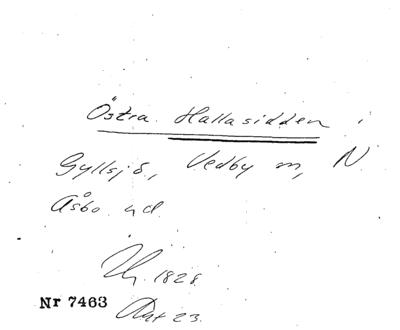 Östra Hallasidden i
Gyllsjö, Vedby m, N
Åsbo hd
1828
Nr 7463
Akt 23.